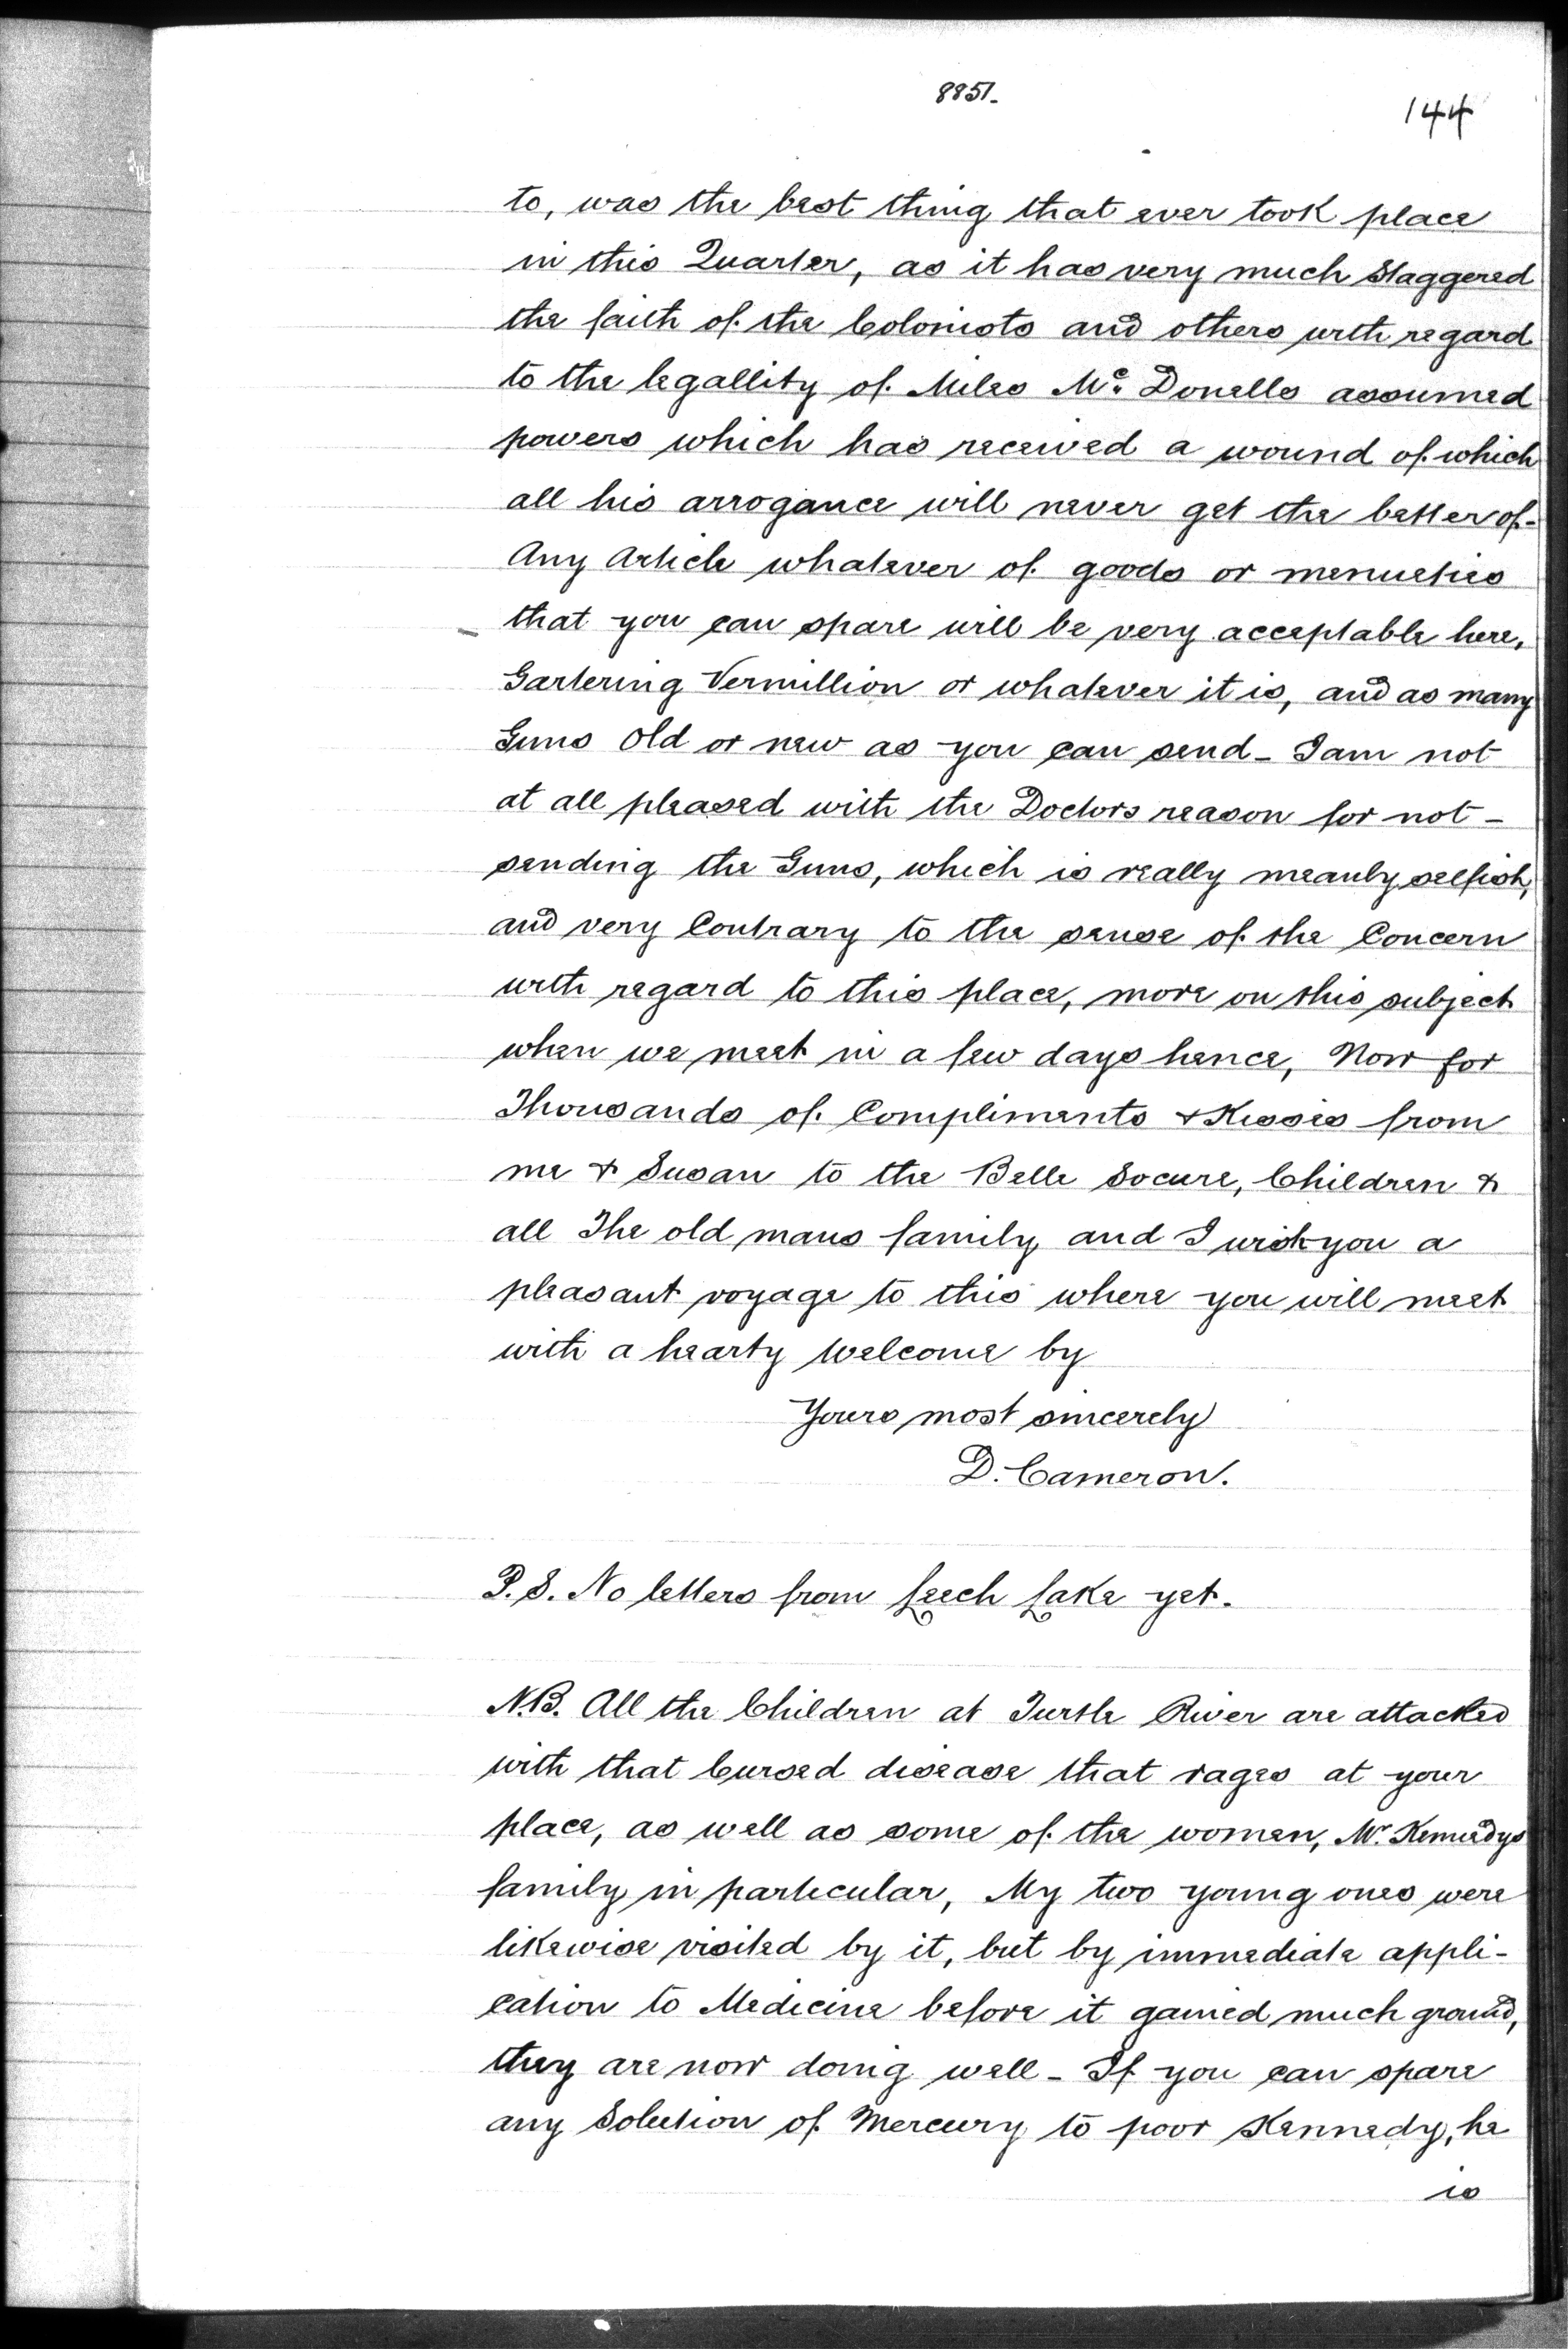 8851.
144
to, was the best thing that ever took place
in this Quarter, as it has very much Staggered
the faith of the Colonists and others with regard
to the legallity of Miles Mc. Donells assumed
powers which has received a wound of which
all his arrogance will never get the better of-
Any Article whatever of goods or menueties
that you can spare will be very acceptable here,
Gartering Vermillion or whatever it is, and as many
Guns Old or new as you can send - I am not
at all pleased with the Doctors reason for not -
sending the Guns, which is really meanly selfish,
and very Contrary to the sense of the Concern
with regard to this place, more on this subject
when we meet in a few days hence, Now for
Thousands of Compliments & Kisses from
me & Susan to the Belle Socure, Children &
all The old mans family and I wish you a
pleasant voyage to this where you will meet
with a hearty Welcome by
Yours most sincerely
D. Cameron.
P.S. No letters from Leech Lake yet.
N.B. All the Children at Turtle River are attacked
with that Cursed disease that rages at your
place, as well as some of the women, Mr. Kennedys
family in particular, My two young ones were
likewise visited by it, but by immediate appli-
cation to Medicine before it gained much ground,
they are now doing well - If you can spare
any Solution of Mercury to poor Kennedy, he
is